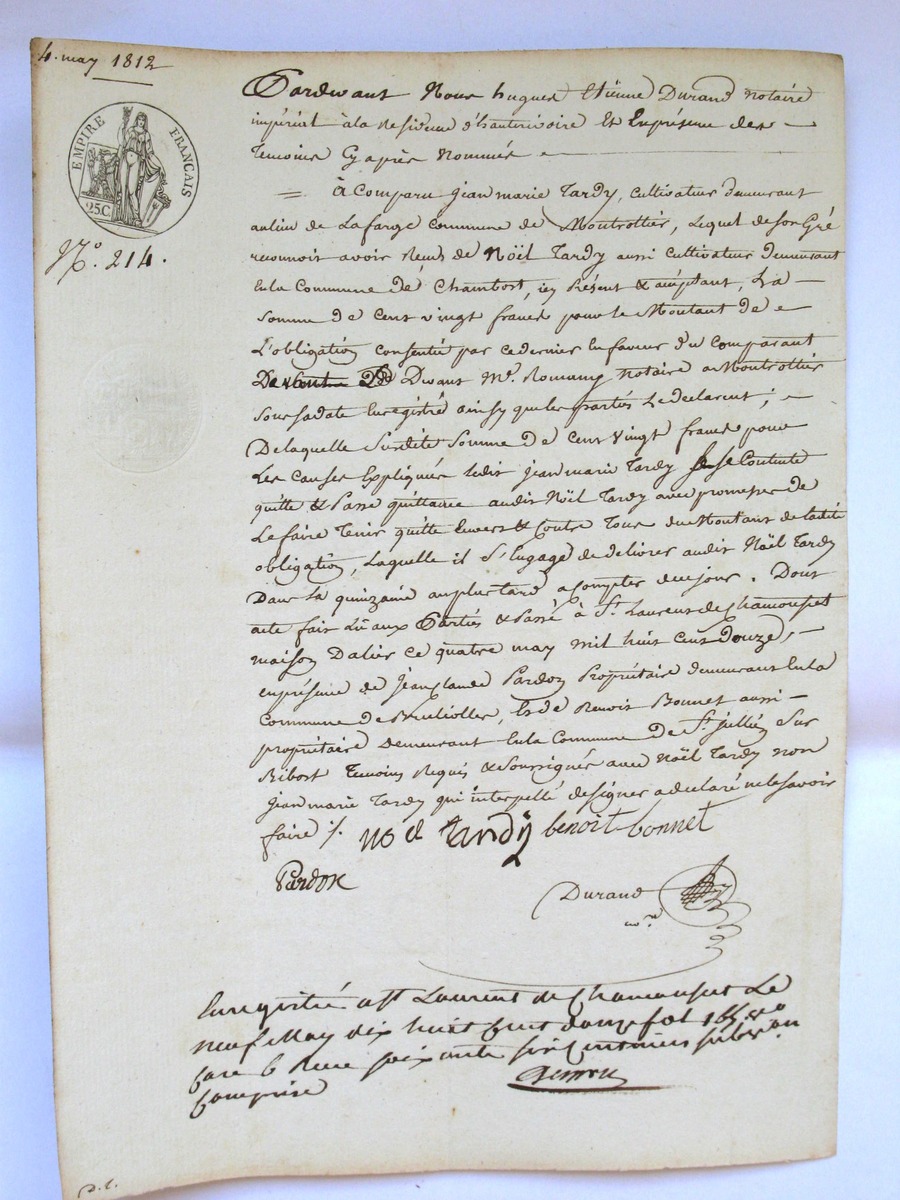 4. may 1812
EMPIRE FRANÇAIS
25 C.
N.º 214.
Pardevant Nous hugues Etiënne Durand notaire
impérial à la Residence d'hauterivoire Et En présence des
temoins Cy après Nommés
= À Comparu jean marie Tardy, cultivateur demeurant
au lieu de Lafarge Commune de Montrottier, Lequel de son Gré
reconnoit avoir Reçu de Noël Tardy aussi Cultivateur demeurant
En la Commune de Chambost, icy Présent & acceptant, La
Somme de Cent vingt francs pour le Montant de
L'obligation Consentie par ce dernier En faveur du Comparant
Devant Me. Romany notaire a Montrottier
Sous sa date Enregistré ainsy que les parties Le declarent;
De laquelle Susdite Somme de Cent Vingt francs pour
Les Causes Expliqués ledit jean marie Tardy se Contente
quitte & Passe quittance audit Noël Tardy avec promesse de
Le faire Tenir quitte Envers & Contre Tous du Montant de ladite
obligation, Laquelle il S'Engage de delivrer audit Noël Tardy
Dans la quinzaine au plus tard a Compter de ce jour. Dont
acte fait Lû aux Parties & Passé à St. Laurent de Chamousset
maison Dalier Ce quatre may Mil huit Cent Douze,
en présence de jean Claude Pardon Propriétaire demeurant En la
Commune de Brullioles, Et de Benoit Bonnet aussi
propriétaire Demeurant En la Commune de St. jullien Sur
Bibost Temoins Requis & Soussignés avec Noël Tardy non
jean marie Tardy qui interpellé de signer a declaré ne le savoir
faire ./.
no el tardy benoit bonnet
Pardon
Durand
nore
Enregistré a St Laurent de Chamousset Le
neuf May dix huit Cent douze fol 165 Vo
Case 6 Recu soixante six Centimes subvon
Comprise